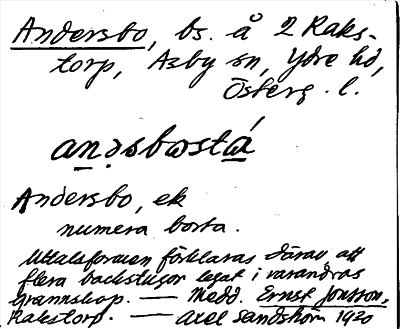 Andersbo, bs. å 2 Raks-
torp, Asby sn, Ydre hd,
Österg. l.
an̲ǝsbωstώ̲
Andersbo, ek
numera borta.
Uttalsformen förklaras därav att
flera backstugor legat i varandras
grannskap. — Medd. Ernst Jonsson,
Rakstorp. — Axel Sandström 1920